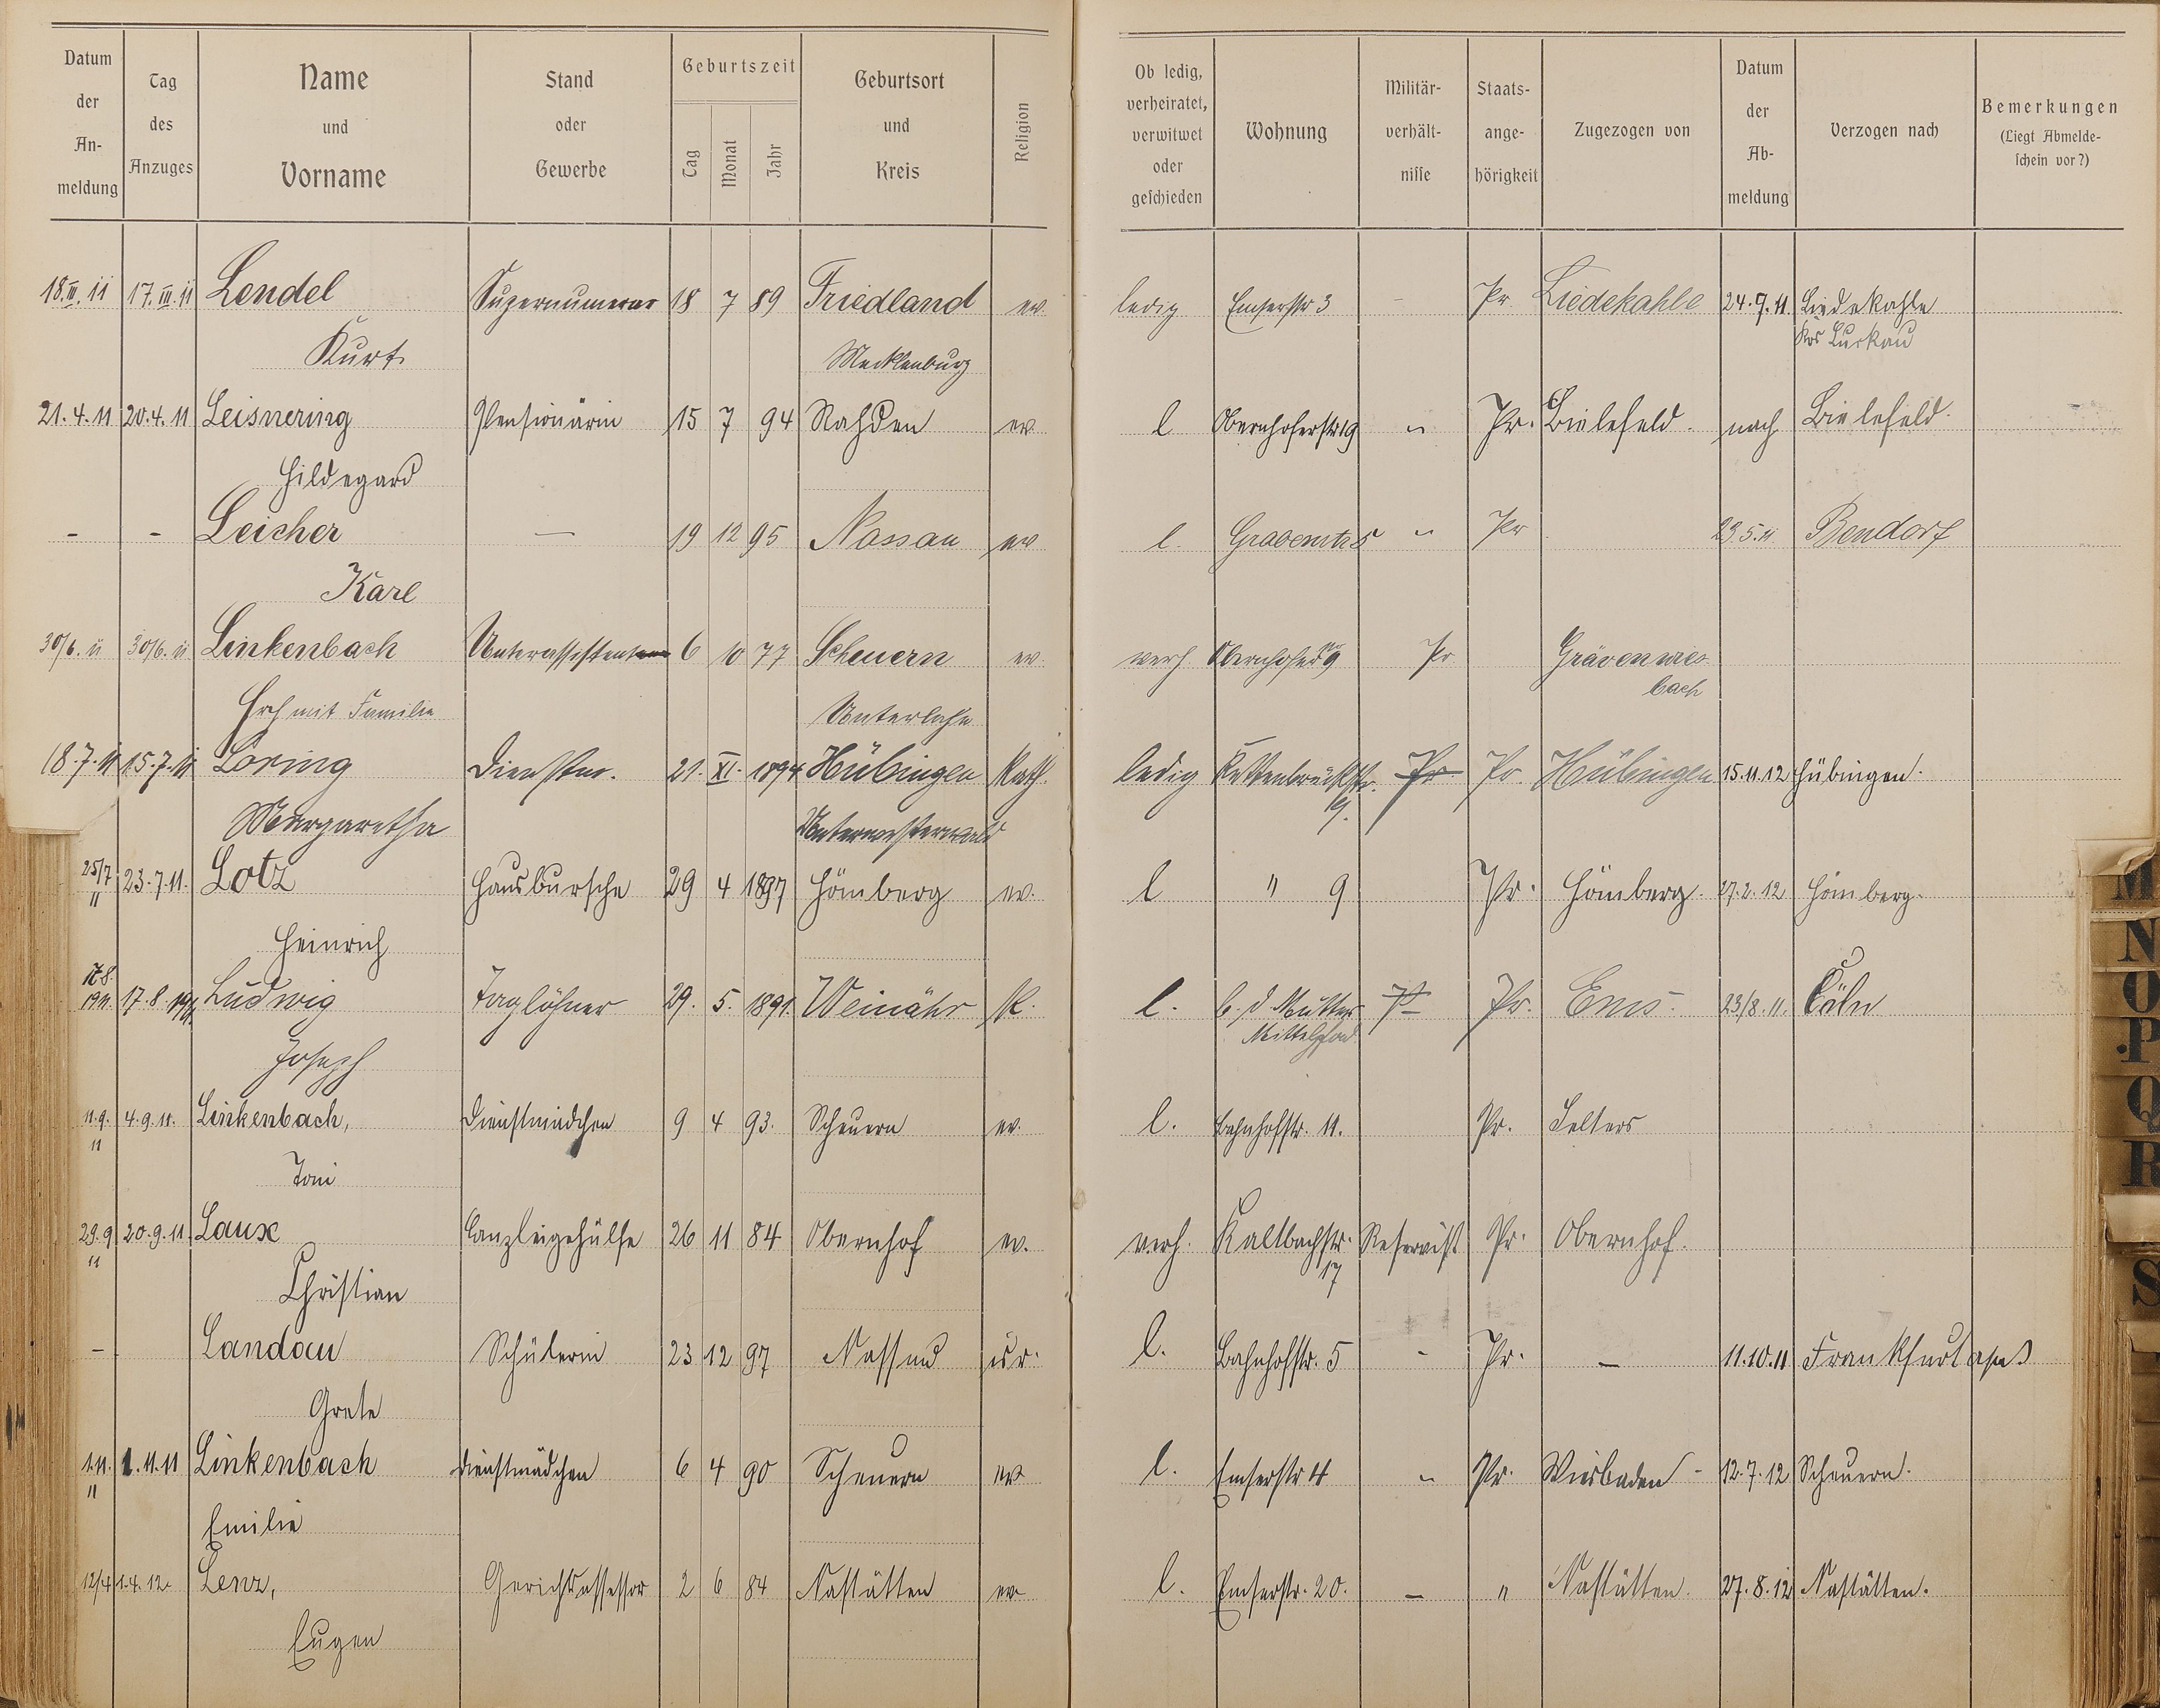 Datum der Anmeldung | Tag des Anzuges | Name und Vorname | Stand oder Gewerbe | Geburtszeit Tag Monat Jahr | Geburtsort und Kreis | Religion | Ob ledig, verheiratet, verwitwet oder geschieden | Wohnung | Militärverhältnisse | Staatsangehörigkeit | Zugezogen von | Datum der Abmeldung | Verzogen nach | Bemerkungen (Liegt Abmeldeschein vor?)
18.III.11 17.III.11 Lendel Supernumerar 18 7 89 Friedland ev. ledig Emserstr 3 - Pr. Liedekahle 24.7.11 Liedekahle
Kurt Mecklenburg Krs Luckau
21.4.11 20.4.11 Leisnering Pensionärin 15 7 94 Rahden ev. l Obernhoferstr 19 " Pr. Bielefeld. nach Bielefeld.
Hildegard
- - Leicher — 19 12 95 Nassau ev l. Grabenstr 5 " Pr 23.5.11 Bendorf
Karl
30/6. 11 30/6. 11 Linkenbach Unterassistent 6 10 77 Scheuern ev. verh. Pr Grävenwies
mit Familie Unterlahn bach
18.7.11 15.7.11 Löring Dienstm. 21. XI. 1894 Hübingen Kath. ledig Kettenbrückstr. Pr Pr. Hübingen 15.11.12 Hübingen.
Margaretha Unterwesterwald 9.
25/7 11 23.7.11. Lotz Hausbursche 29 4 1897 Hömberg ev. l " 9 Pr. Hömberg. 27.2.12 Hömberg.
Heinrich
17.8. 1911. 17.8.1911. Ludwig Taglöhner 29. 5. 1891. Weinähr K. l. b. d. Mutter Pr. Ems. 23/8.11. Cöln
Joseph Mittelpfad
11.9. 11 4.9.11. Linkenbach, Dienstmädchen 9 4 93. Scheuern ev. l. Bahnhofstr. 11. Pr. Selters
Toni
29.9 11 20.9.11 Laux Canzleigehülfe 26 11 84 Obernhof ev. verh. Kaltbachstr. Reservist Pr. Obernhof.
Christian 17
- Landau Schülerin 23 12 97 Nassau isr. l. Bahnhofstr. 5 - Pr. — 11.10.11 Frankfurt
Grete
1.11. 11 1.11.11 Linkenbach Dienstmädchen 6 4 90 Scheuern ev l. Emserstr 4 " Pr. Wiesbaden - 12.7.12 Scheuern.
Emilie
12/4 1.4.12. Lenz, Gerichtsassessor 2 6 84 Nastätten ev. l. Emserstr. 20. — " Nastätten. 27.8.12 Nastätten.
Eugen
M
N
O
P
Q
R
S